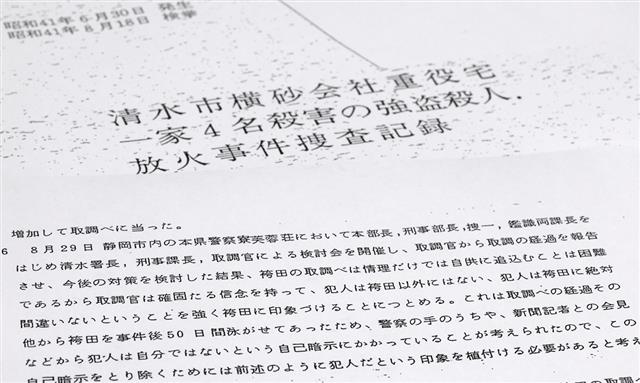 昭和41年6月30日 発生
昭和41年8月18日 検挙
清水市横砂会社重役宅
一家4名殺害の強盗殺人.
放火事件捜査記録
増加して取調べに当った。
6 8月29日 静岡市内の本県警察寮芙蓉荘において本部長,刑事部長,捜一,鑑識両課長を
はじめ清水署長,刑事課長,取調官による検討会を開催し、取調官から取調の経過を報告
させ、今後の対策を検討した結果、袴田の取調べは情理だけでは自供に追込むことは困難
であるから取調官は確固たる信念を持って、犯人は袴田以外にはない、犯人は袴田に絶対
間違いないということを強く袴田に印象づけることにつとめる。これは取調べの経過その
他から袴田を事件後50日間泳がせてあったため、警察の手のうちや、新聞記者との会見
などから犯人は自分ではないという自己暗示にかかっていることが考えられたので、この
自己暗示をとり除くためには前述のように犯人だという印象を植付ける必要があると考え